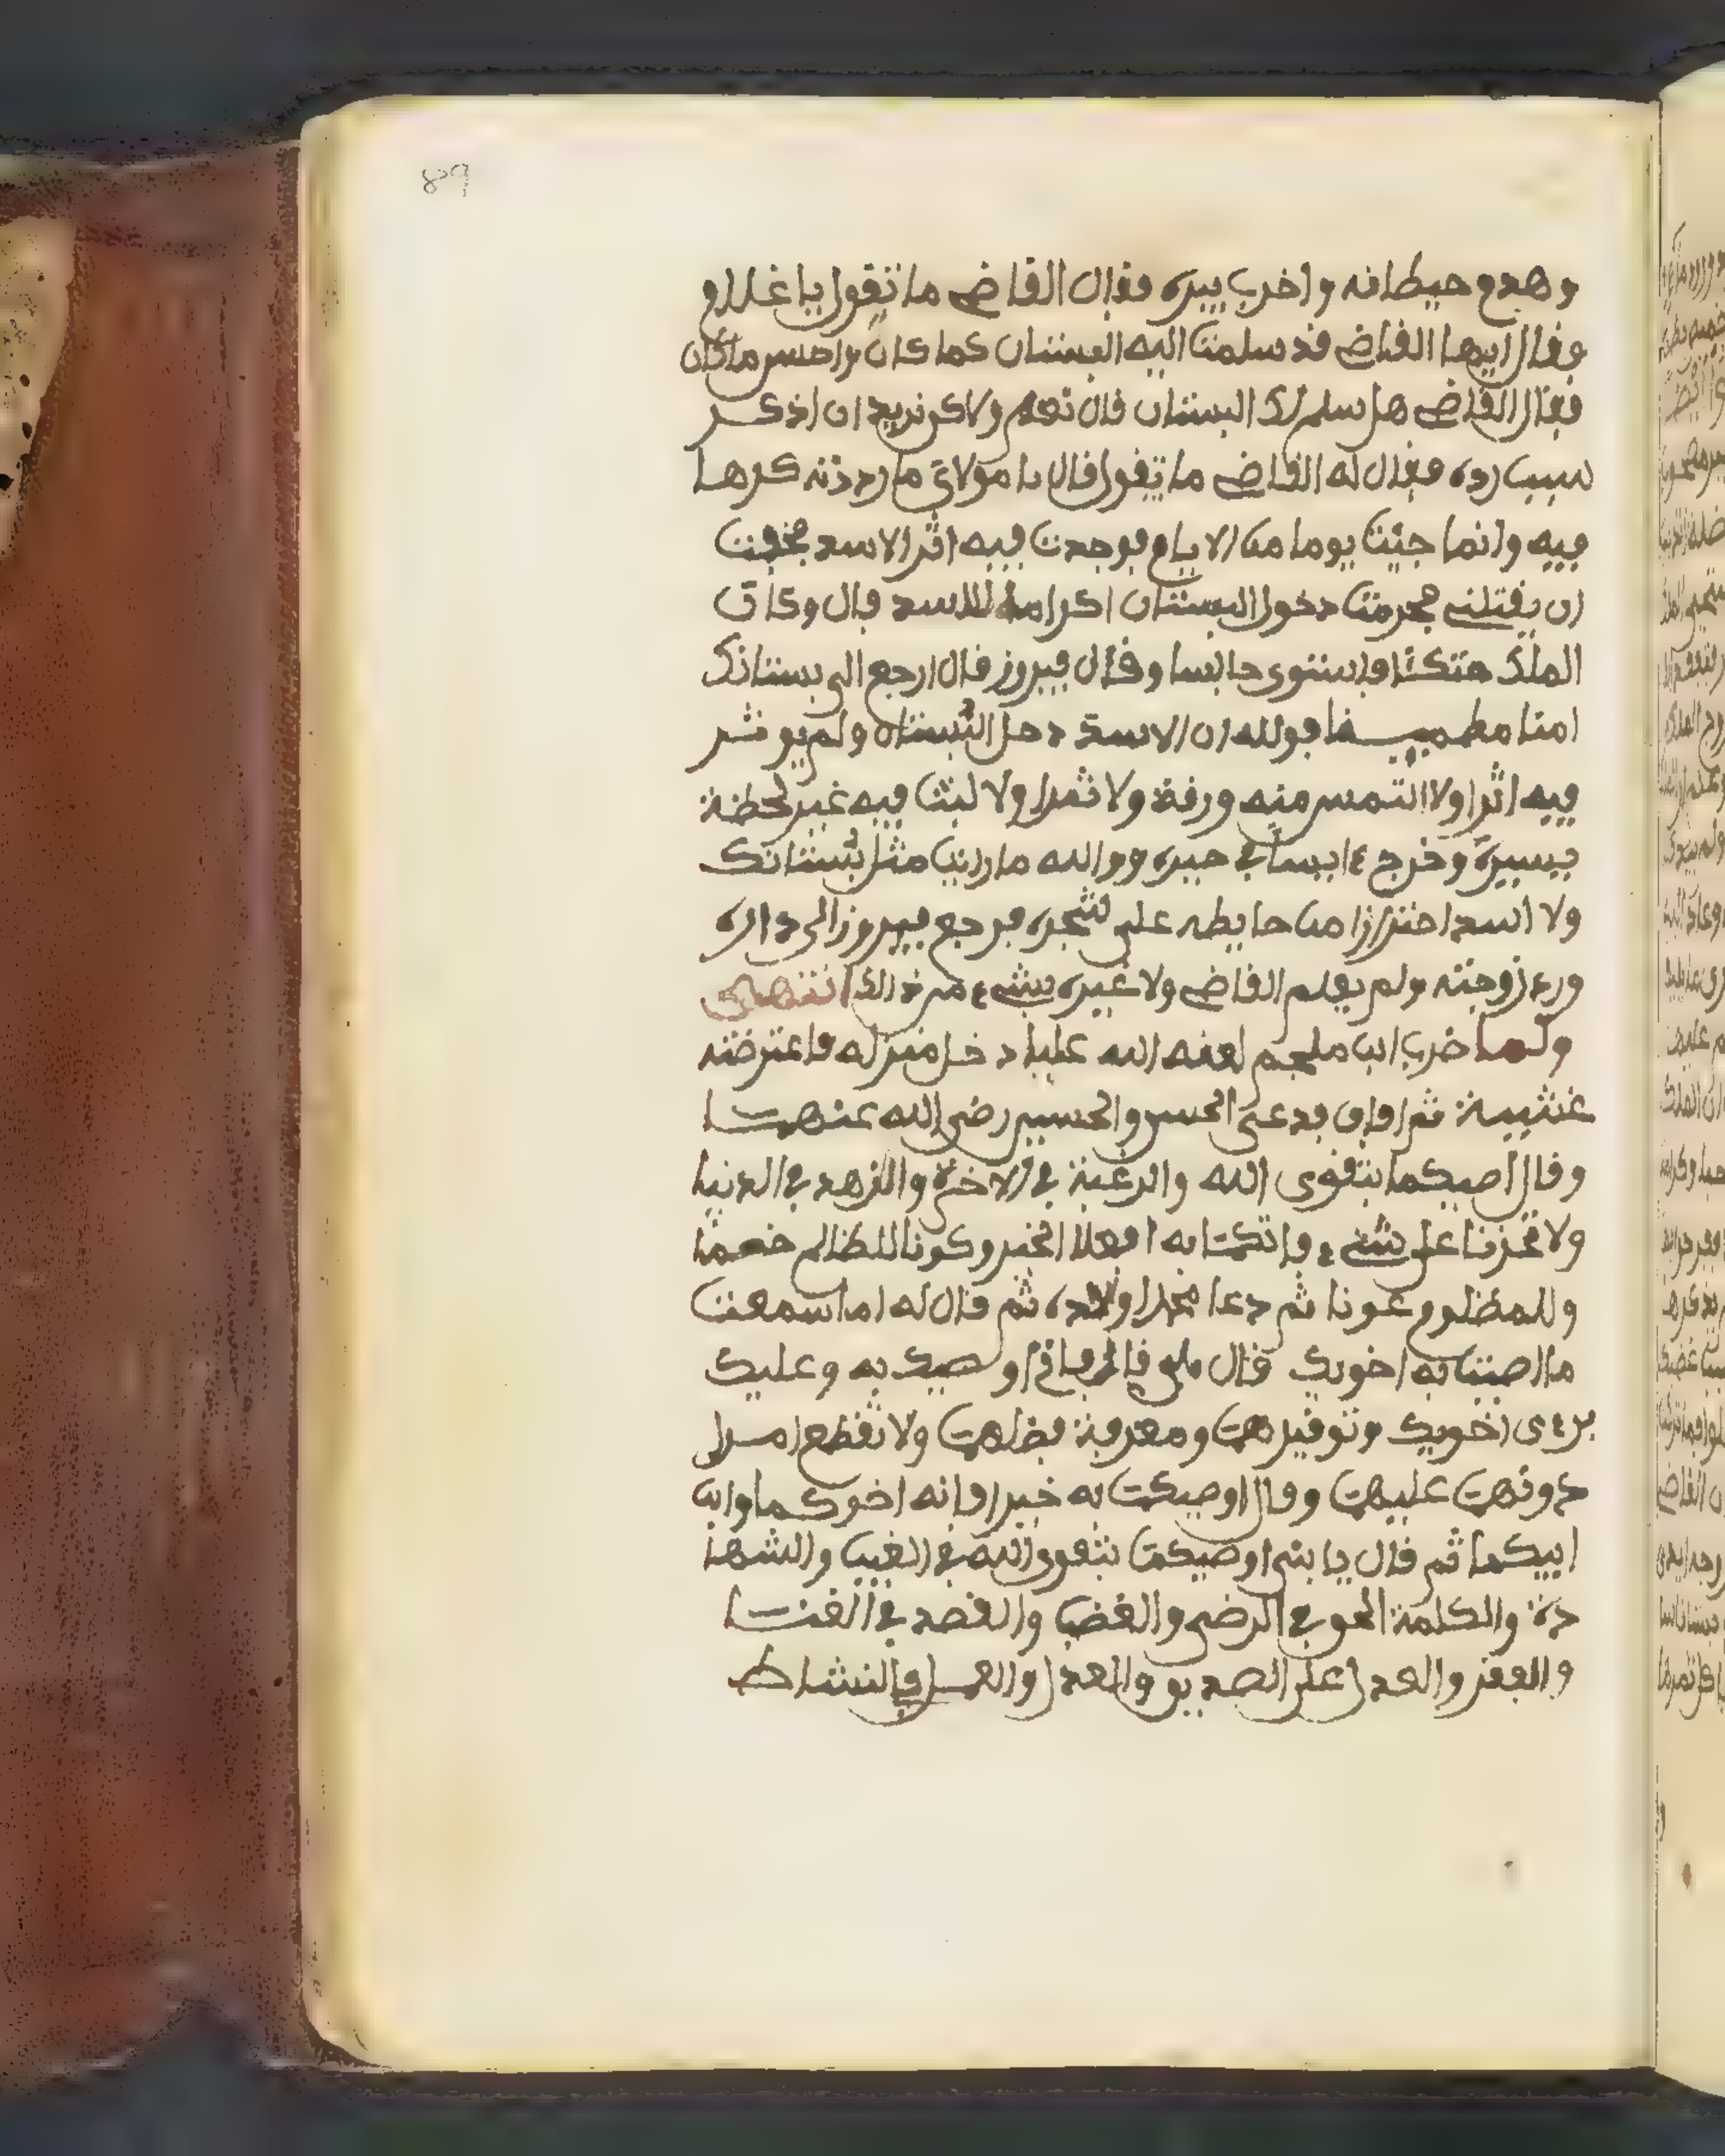 89
وهدم حيطانه واخرب بيره فقال القاضي ما تقول يا غلام
فقال ايها القاضي قد سلمت اليه البستان كما كان واحسن ما كان
فقال القاضي هل سلم لك البستان قال نعم ولاكن نريد ان اذكر
سبب رده فقال له القاضي ما تقول قال يا مولاي ما رددته كرها
فيه وانما جيئت يوما من الايام فوجدت فيه اثر الاسد فخفت
ان يقتلني فحرمت دخول البستان اكرامة للاسد قال وكان
الملك متكئا فاستوى جالسا وقال فيروز فال ارجع الى بستانك
امنا مطمينا فوالله ان الاسد دخل البستان ولم يوثر
فيه اثرا ولا التمس منه ورقة ولا ثمرا ولا لبث فيه غير لحظة
يسيرة وخرج ءايسا في حيره ووالله ما رايت مثل بستانك
ولا اسد احترازا من حايطه على شجره فرجع فيروز الى داره
ورد زوجته ولم يعلم القاضي ولا غيره بشيء من ذالك انتهى
ولما ضرب ابن ملجم لعنه الله عليا دخل منزله فاعترضته
غشيية ثم افاق فدعى الحسن والحسين رضي الله عنهما
وقال اصيكما بتقوى الله والرغبة في الاخرة والزهد في الدنيا
ولا تحزنا على شيء فاتكما به افعلا الخير وكونا للظالم خصما
وللمظلوم عونا ثم دعا محمدا ولده ثم قال له اما سمعت
ما اصيت به اخويك قال بلى قال فاني اوصيك به وعليك
ببر اخويك وتوقيرهما ومعرفة فضلهما ولا تقطع امرا
دونهما عليهما وقال اوصيكما به خيرا فانه اخوكما وابن
ابيكما ثم قال يا بني اوصيكما بتقوى الله في الغيب والشها
دة والكلمة الحق في الرضى والغضب والقصد في الغنا
والفقر والعدل على الصديق والعدل والعمل في النشاط